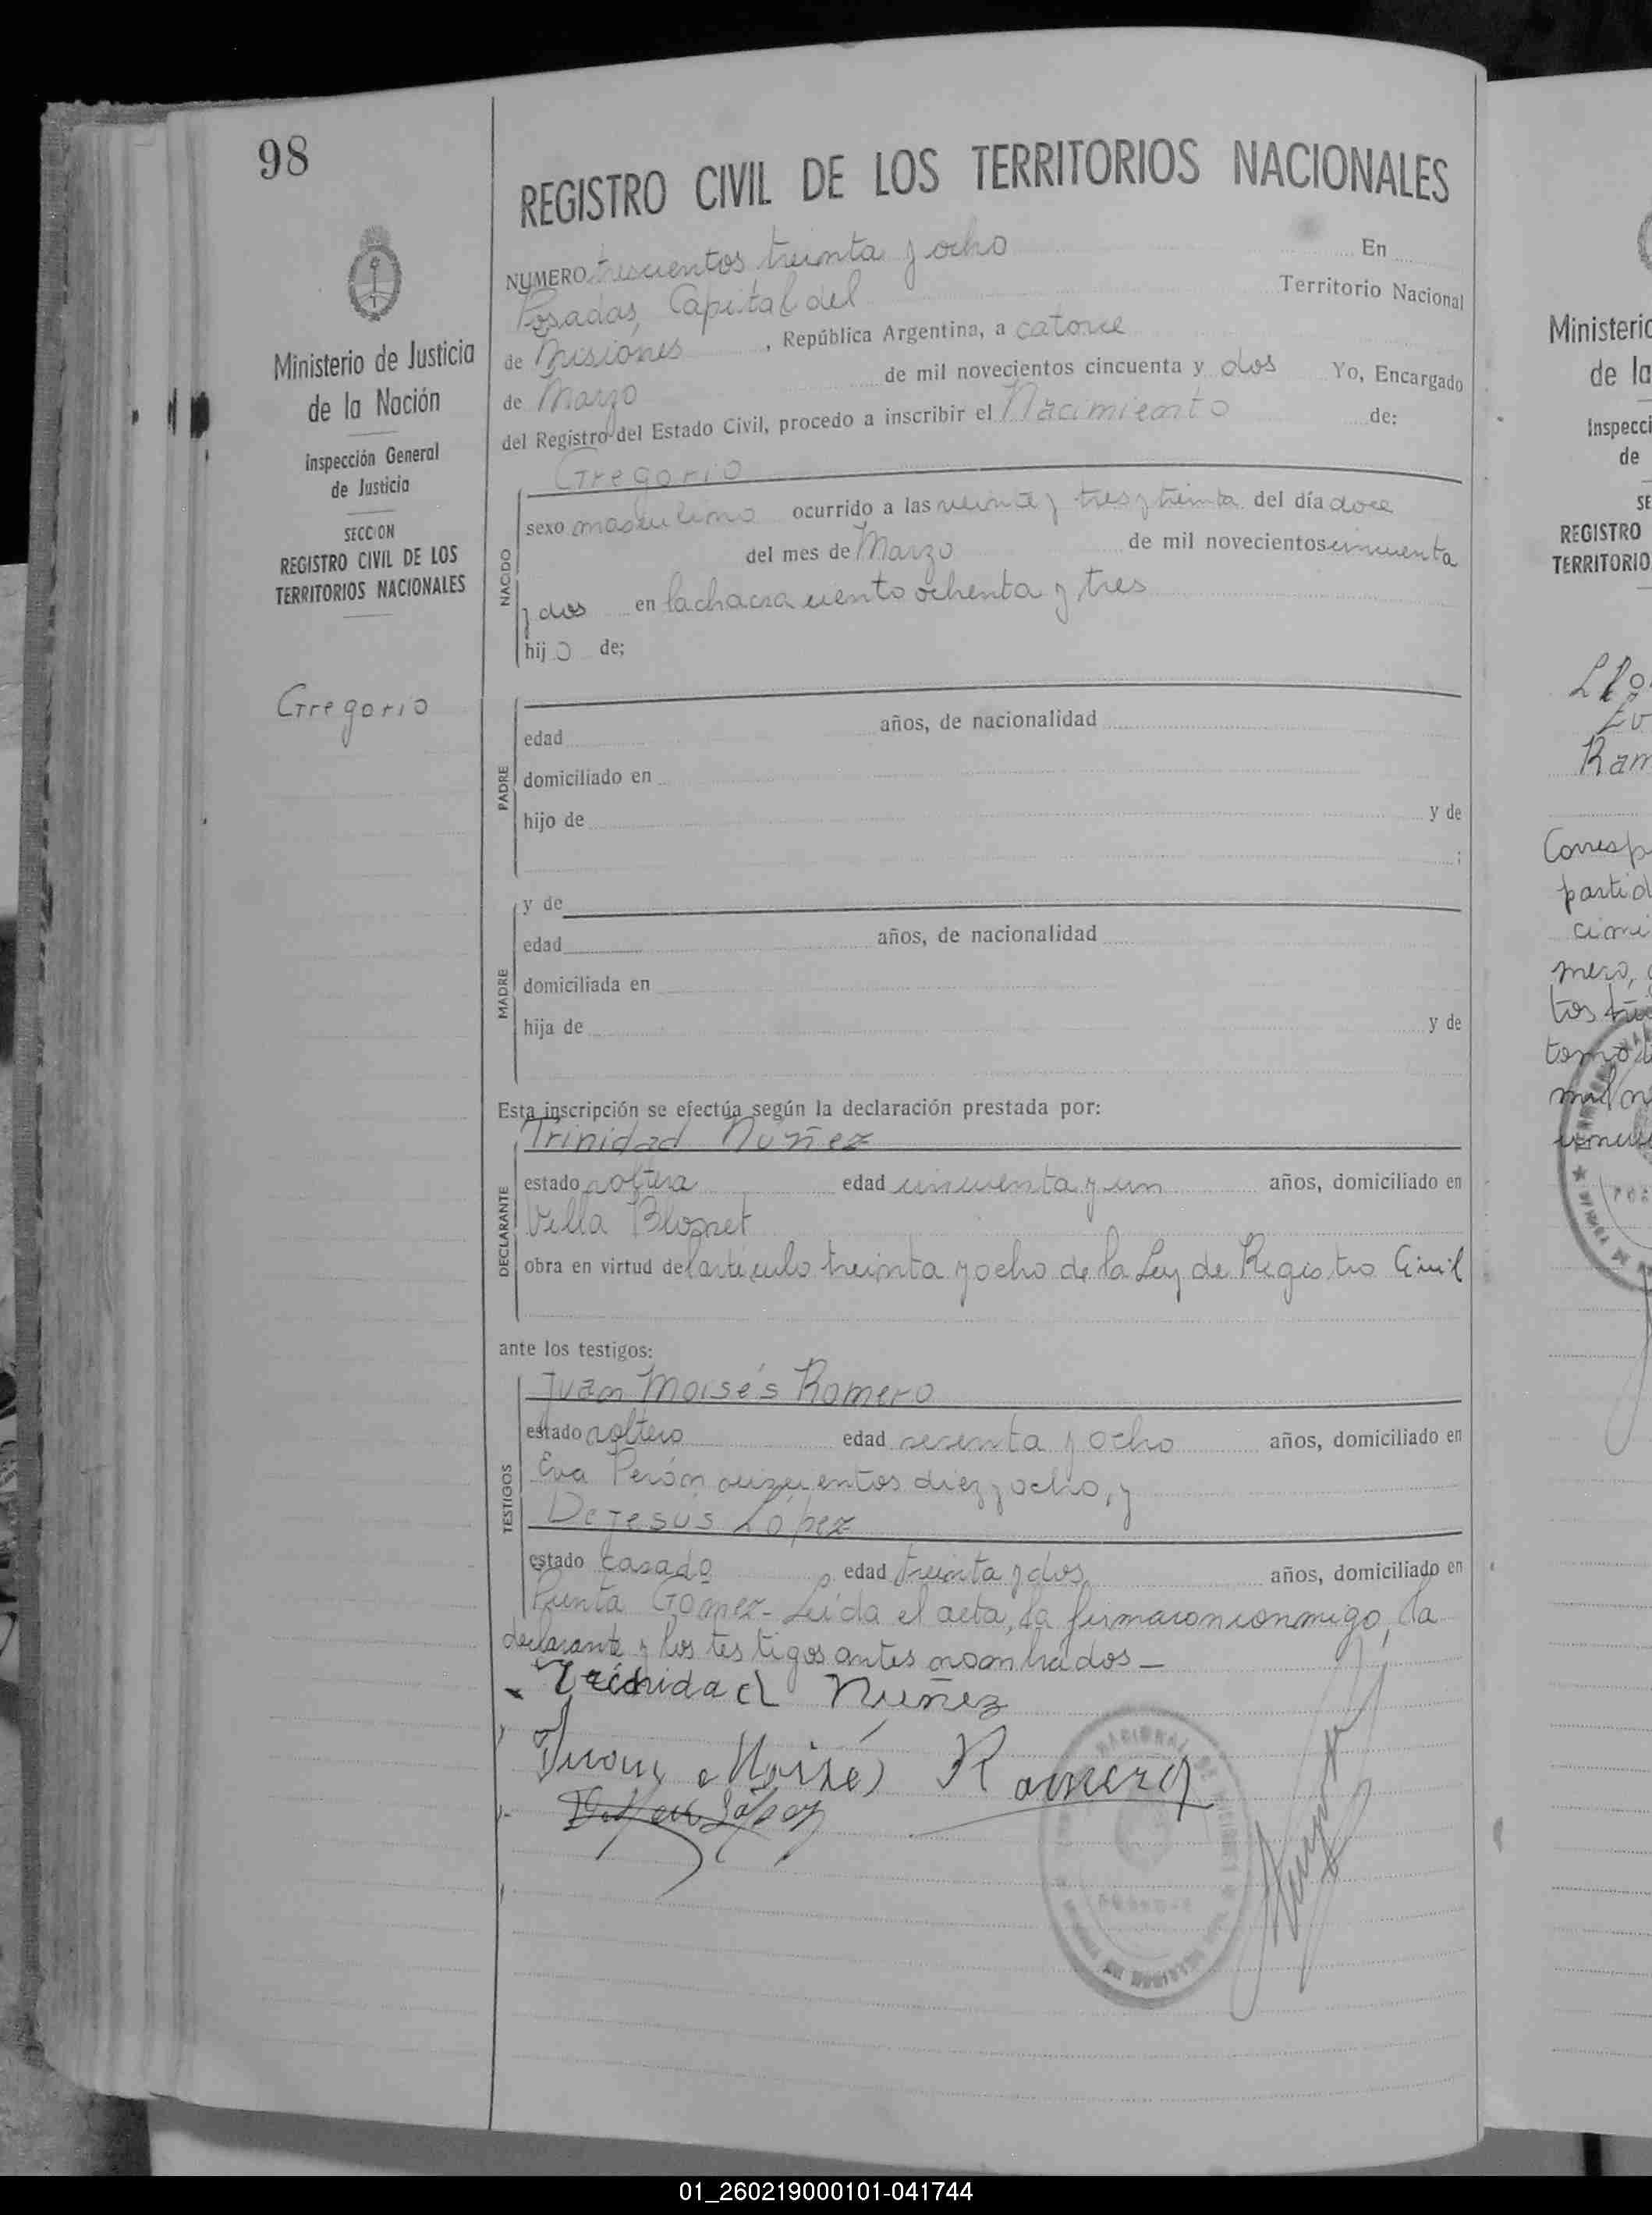 98
REGISTRO CIVIL DE LOS TERRITORIOS NACIONALES
NUMERO trescientos treinta y ocho En
Posadas, Capital del Territorio Nacional
de Misiones, República Argentina, a catorce
de Marzo de mil novecientos cincuenta y dos Yo, Encargado
del Registro del Estado Civil, procedo a inscribir el Nacimiento de:
Ministerio de Justicia
de la Nación
Inspección General
de Justicia
SECCION
REGISTRO CIVIL DE LOS
TERRITORIOS NACIONALES
Gregorio
NACIDO
Gregorio
sexo masculino ocurrido a las veinte y tres y treinta del día doce
del mes de Marzo de mil novecientos cincuenta
y dos en la chacra ciento ochenta y tres
hijo de;
PADRE
edad años, de nacionalidad
domiciliado en
hijo de y de
;
MADRE
y de
edad años, de nacionalidad
domiciliada en
hija de y de
Esta inscripción se efectúa según la declaración prestada por:
DECLARANTE
Trinidad Nuñez
estado soltera edad cincuenta y un años, domiciliado en
Villa Blosset
obra en virtud del artículo treinta y ocho de la Ley de Registro Civil
ante los testigos:
TESTIGOS
Juan Moisés Romero
estado soltero edad sesenta y ocho años, domiciliado en
Eva Perón quinientos diez y ocho, y
De Jesús López
estado casado edad treinta y dos años, domiciliado en
Punta Gómez - Leída el acta, la firmaron conmigo, la
declarante y los testigos antes nombrados -
Trinidad Nuñez
Juan Moisés Romero
Ministerio
de la
Inspecci
de
SE
REGISTRO
TERRITORIO
Ram
Corresp
partid
cimi
mero,
01_260219000101-041744